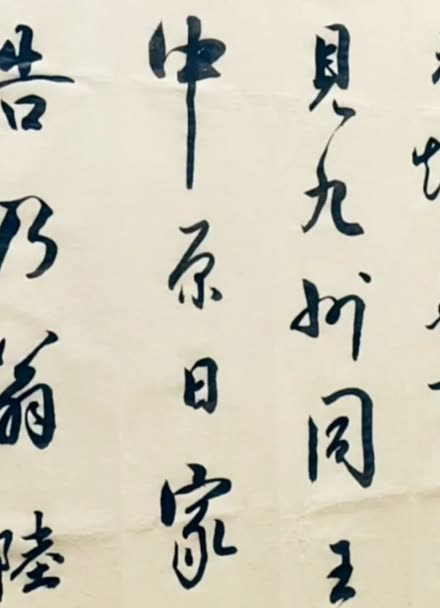 見九州同王
中原日家
告乃翁陸